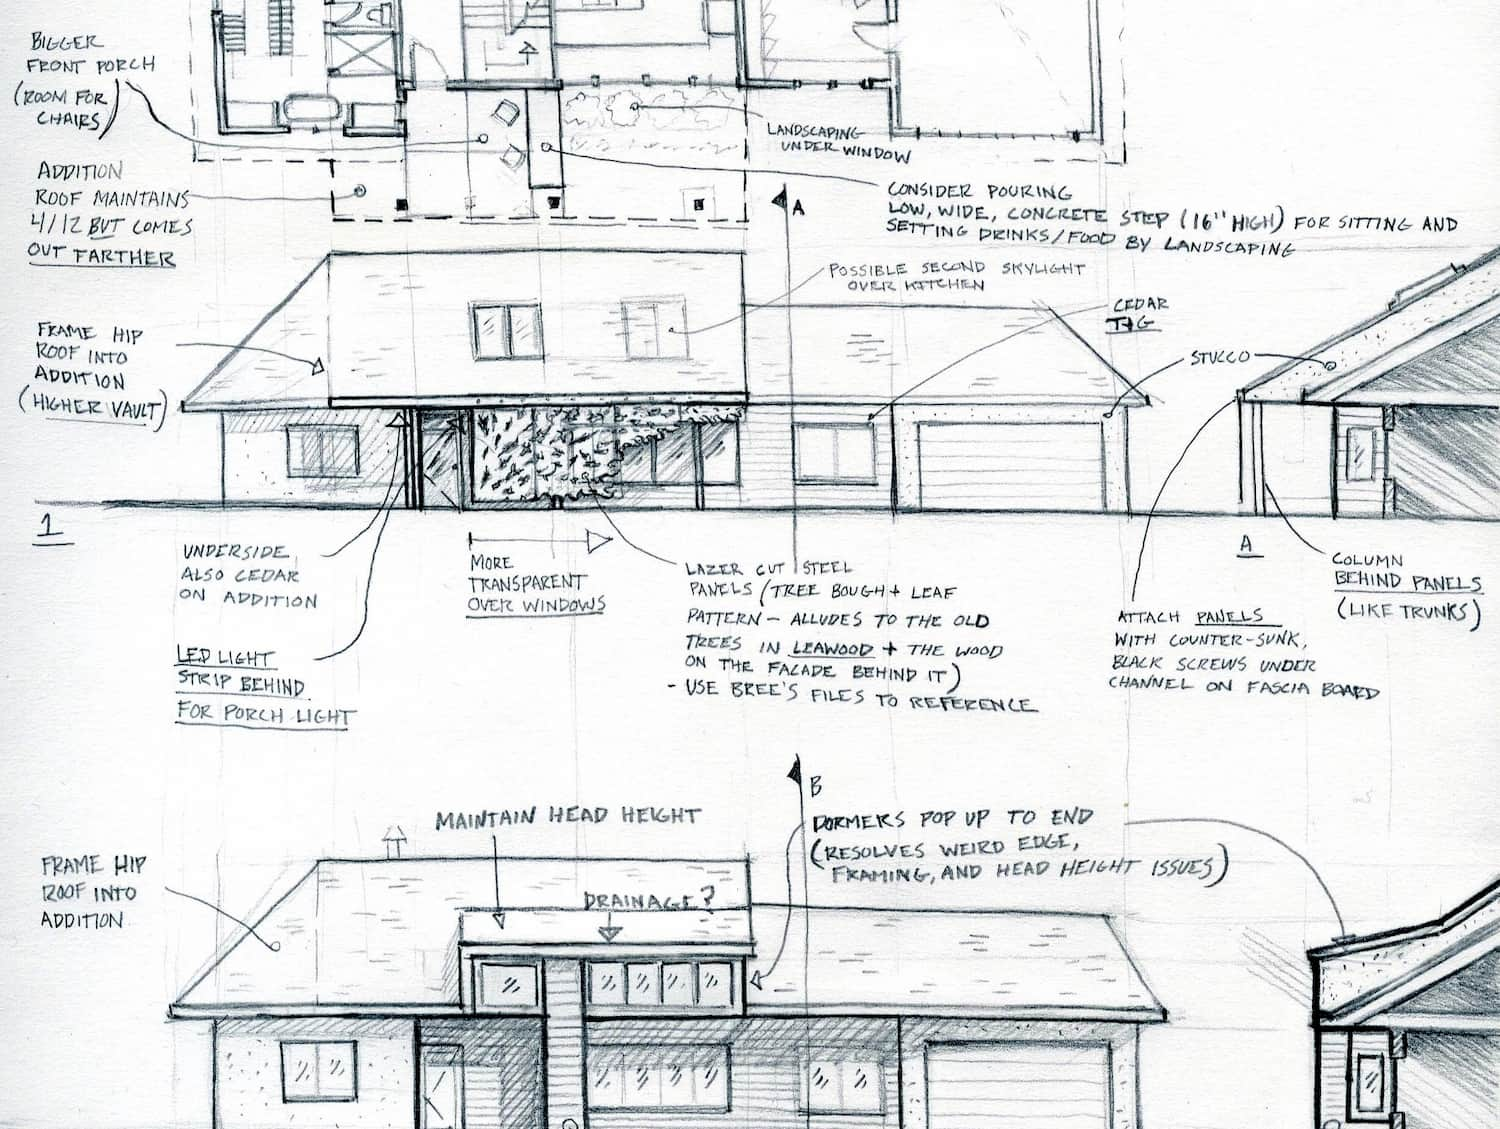 BIGGER
FRONT PORCH
(ROOM FOR
CHAIRS)
ADDITION
ROOF MAINTAINS
4/12 BUT COMES
OUT FARTHER
LANDSCAPING
UNDER WINDOW
CONSIDER POURING
LOW, WIDE, CONCRETE STEP (16" HIGH) FOR SITTING AND
SETTING DRINKS/FOOD BY LANDSCAPING
A
POSSIBLE SECOND SKYLIGHT
OVER KITCHEN
CEDAR
T+G
STUCCO
FRAME HIP
ROOF INTO
ADDITION
(HIGHER VAULT)
1
UNDERSIDE
ALSO CEDAR
ON ADDITION
LED LIGHT
STRIP BEHIND
FOR PORCH LIGHT
MORE
TRANSPARENT
OVER WINDOWS
LAZER CUT STEEL
PANELS (TREE BOUGH + LEAF
PATTERN - ALLUDES TO THE OLD
TREES IN LEAWOOD + THE WOOD
ON THE FACADE BEHIND IT)
- USE BREE'S FILES TO REFERENCE
A
ATTACH PANELS
WITH COUNTER-SUNK,
BLACK SCREWS UNDER
CHANNEL ON FASCIA BOARD
COLUMN
BEHIND PANELS
(LIKE TRUNKS)
MAINTAIN HEAD HEIGHT
B
DORMERS POP UP TO END
(RESOLVES WEIRD EDGE,
FRAMING, AND HEAD HEIGHT ISSUES)
FRAME HIP
ROOF INTO
ADDITION
DRAINAGE?